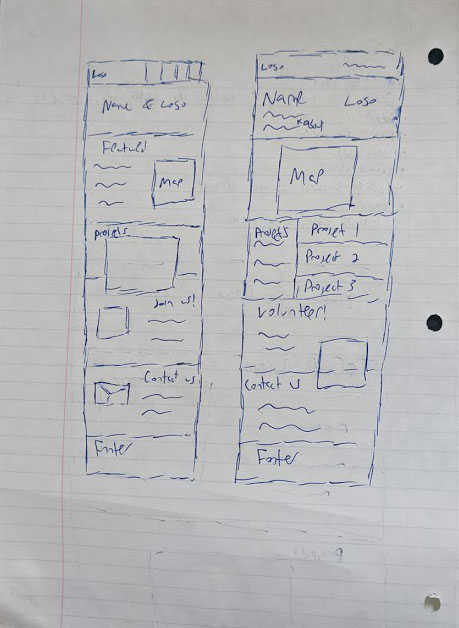 Logo
Name & Logo
Featured
Map
Projects
Join us!
Contact us
Footer
Logo
Name Logo
Map
Projects
Project 1
Project 2
Project 3
Volunteer!
Contact us
Footer